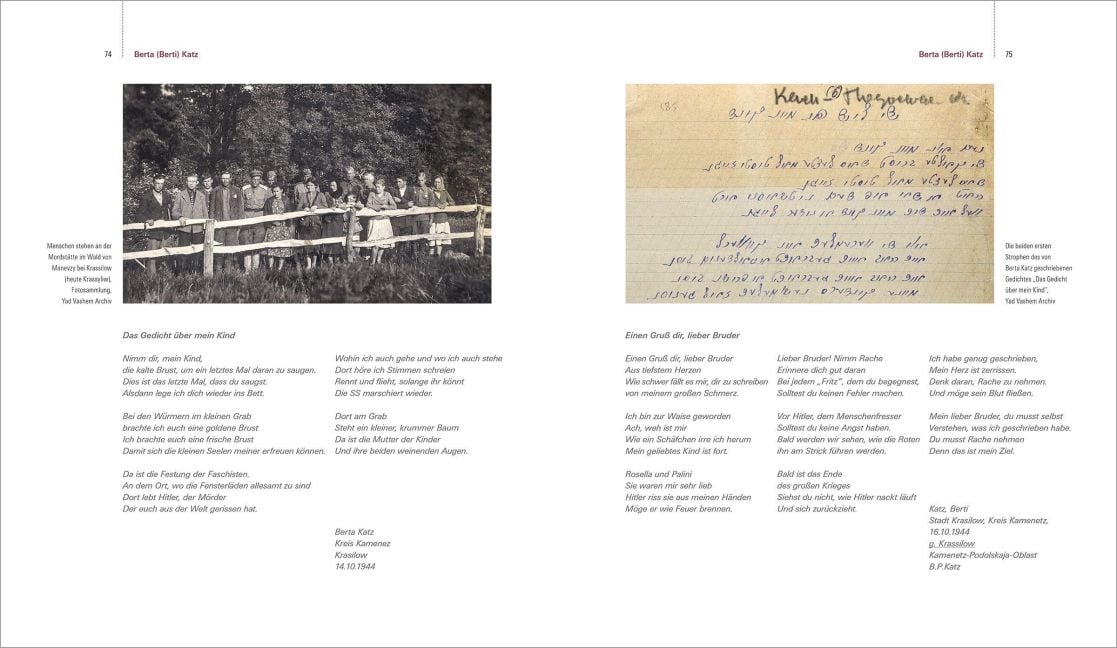 74 Berta (Berti) Katz
Menschen stehen an der
Mordstätte im Wald von
Manevzy bei Krassilow
(heute Krassyliw),
Fotosammlung,
Yad Vashem Archiv
Das Gedicht über mein Kind
Nimm dir, mein Kind,
die kalte Brust, um ein letztes Mal daran zu saugen.
Dies ist das letzte Mal, dass du saugst.
Alsdann lege ich dich wieder ins Bett.
Bei den Würmern im kleinen Grab
brachte ich euch eine goldene Brust
Ich brachte euch eine frische Brust
Damit sich die kleinen Seelen meiner erfreuen können.
Da ist die Festung der Faschisten.
An dem Ort, wo die Fensterläden allesamt zu sind
Dort lebt Hitler, der Mörder
Der euch aus der Welt gerissen hat.
Wohin ich auch gehe und wo ich auch stehe
Dort höre ich Stimmen schreien
Rennt und flieht, solange ihr könnt
Die SS marschiert wieder.
Dort am Grab
Steht ein kleiner, krummer Baum
Da ist die Mutter der Kinder
Und ihre beiden weinenden Augen.
Berta Katz
Kreis Kamenez
Krasilow
14.10.1944
Berta (Berti) Katz 75
Die beiden ersten
Strophen des von
Berta Katz geschriebenen
Gedichtes „Das Gedicht
über mein Kind",
Yad Vashem Archiv
Einen Gruß dir, lieber Bruder
Einen Gruß dir, lieber Bruder
Aus tiefstem Herzen
Wie schwer fällt es mir, dir zu schreiben
von meinem großen Schmerz.
Ich bin zur Waise geworden
Ach, weh ist mir
Wie ein Schäfchen irre ich herum
Mein geliebtes Kind ist fort.
Rosella und Palini
Sie waren mir sehr lieb
Hitler riss sie aus meinen Händen
Möge er wie Feuer brennen.
Lieber Bruder! Nimm Rache
Erinnere dich gut daran
Bei jedem „Fritz", dem du begegnest,
Solltest du keinen Fehler machen.
Vor Hitler, dem Menschenfresser
Solltest du keine Angst haben.
Bald werden wir sehen, wie die Roten
ihn am Strick führen werden.
Bald ist das Ende
des großen Krieges
Siehst du nicht, wie Hitler nackt läuft
Und sich zurückzieht.
Ich habe genug geschrieben,
Mein Herz ist zerrissen.
Denk daran, Rache zu nehmen.
Und möge sein Blut fließen.
Mein lieber Bruder, du musst selbst
Verstehen, was ich geschrieben habe.
Du musst Rache nehmen
Denn das ist mein Ziel.
Katz, Berti
Stadt Krasilow, Kreis Kamenetz,
16.10.1944
g. Krassilow
Kamenetz-Podolskaja-Oblast
B.P.Katz